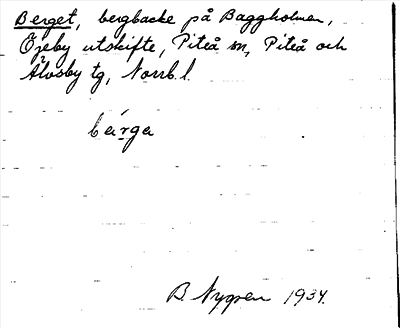 Berget, bergbacke på Baggholmen,
Öjeby utskifte, Piteå sn, Piteå och
Älvsby tg, Norrb. l.
bärga
B. Nygren 1934.